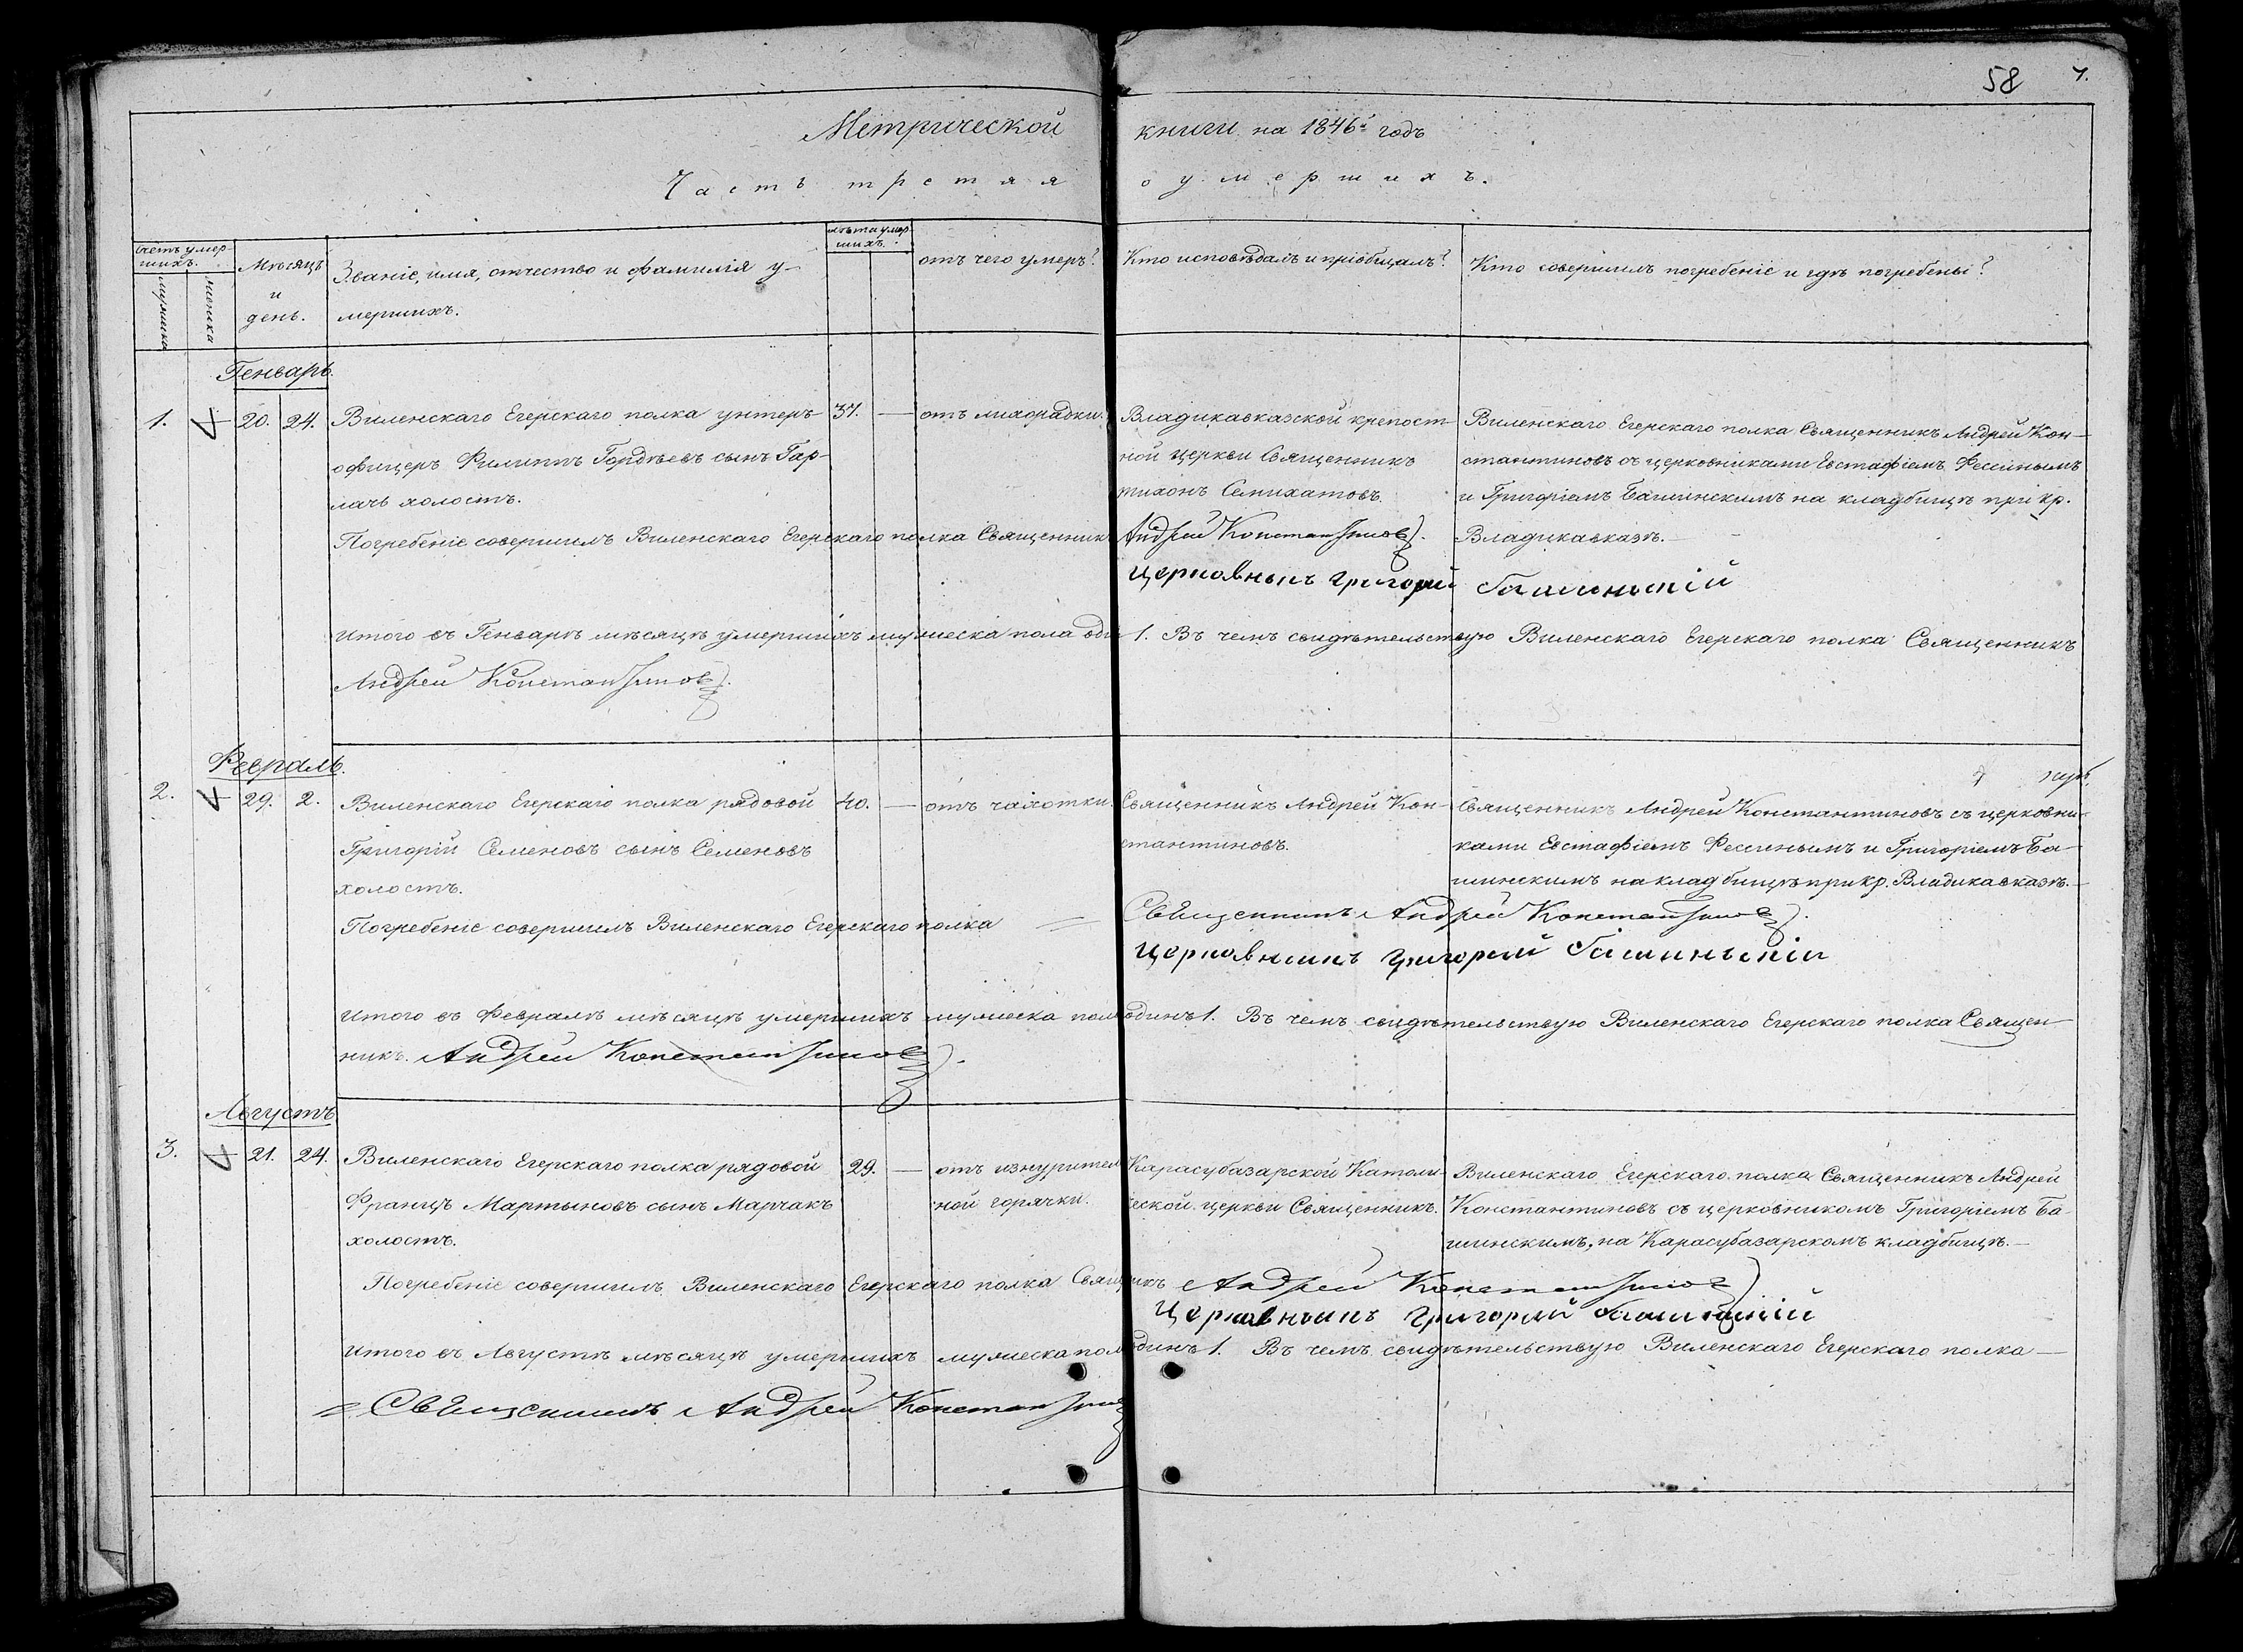 58 7.
Метрической книги на 1846й годъ
Часть третая о умершихъ.
Счетъ умер-
шихъ.
мужеска
женска
Мѣсяцъ
и
день.
Званіе, имя, отчество и фамилія у-
мершихъ.
лѣта умер
шихъ.
отъ чего умеръ?
Кто исповѣдалъ и пріобщалъ?
Кто совершилъ погребеніе и гдѣ погребены?
Генварь.
1. 20. 24. Виленскаго Егерскаго полка унтеръ- 37. — отъ лихорадки. Владикавказской крепост- Виленскаго Егерскаго полка Священникъ Андрей Кон-
офицеръ Филиппъ Гордѣевъ сынъ Гар- ной церкви Священникъ стантиновъ съ церковниками Евстафіемъ Фесинымъ
мачь холостъ. Тихонъ Семихатовъ. и Григоріемъ Башинскимъ на кладбищѣ при кр.
Погребеніе совершилъ Виленскаго Егерскаго полка Священникъ Андрей Константиновъ. Владикавказѣ.
Церковникъ Григорій Башинскій
Итого въ Генварѣ мѣсяцѣ умершихъ мужеска пола оди 1. Въ чемъ свидѣтельствую Виленскаго Егерскаго полка Священникъ
Андрей Константиновъ.
Февраль.
2. 29. 2. Виленскаго Егерскаго полка рядовой 40. — отъ чахотки. Священникъ Андрей Кон- Священникъ Андрей Константиновъ съ церковни-
Григорій Семеновъ сынъ Семеновъ стантиновъ. ками Евстафіемъ Фесинымъ и Григоріемъ Ба-
холостъ. шинскимъ на кладбищѣ при кр. Владикавказѣ.—
Погребеніе совершилъ Виленскаго Егерскаго полка = Священникъ Андрей Константиновъ.
Церковникъ Григорий Башинскій
Итого въ Февралѣ мѣсяцѣ умершихъ мужеска пола одинъ 1. Въ чемъ свидѣтельствую Виленскаго Егерскаго полка Священ-
никъ. Андрей Константиновъ.
Августъ
3. 21. 24. Виленскаго Егерскаго полка рядовой 29. — отъ изнурител Карасубазарской Католи Виленскаго Егерскаго полка Священникъ Андрей
Францъ Мартыновъ сынъ Марчакъ ной горячки. ческой церкви Священникъ. Константиновъ съ церковникомъ Григоріемъ Ба-
холостъ. шинскимъ, на Карасубазарскомъ кладбищѣ.—
Погребеніе совершилъ Виленскаго Егерскаго полка Священникъ Андрей Константиновъ
Церковникъ Григорий Башинскій
Итого въ Августѣ мѣсяцѣ умершихъ мужеска пола одинъ 1. Въ чемъ свидѣтельствую Виленскаго Егерскаго полка —
= Священникъ Андрей Константиновъ